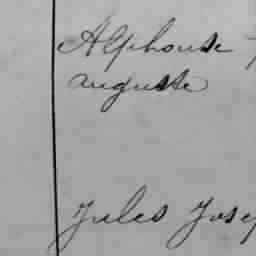 Alphonse
auguste
Jules Josep